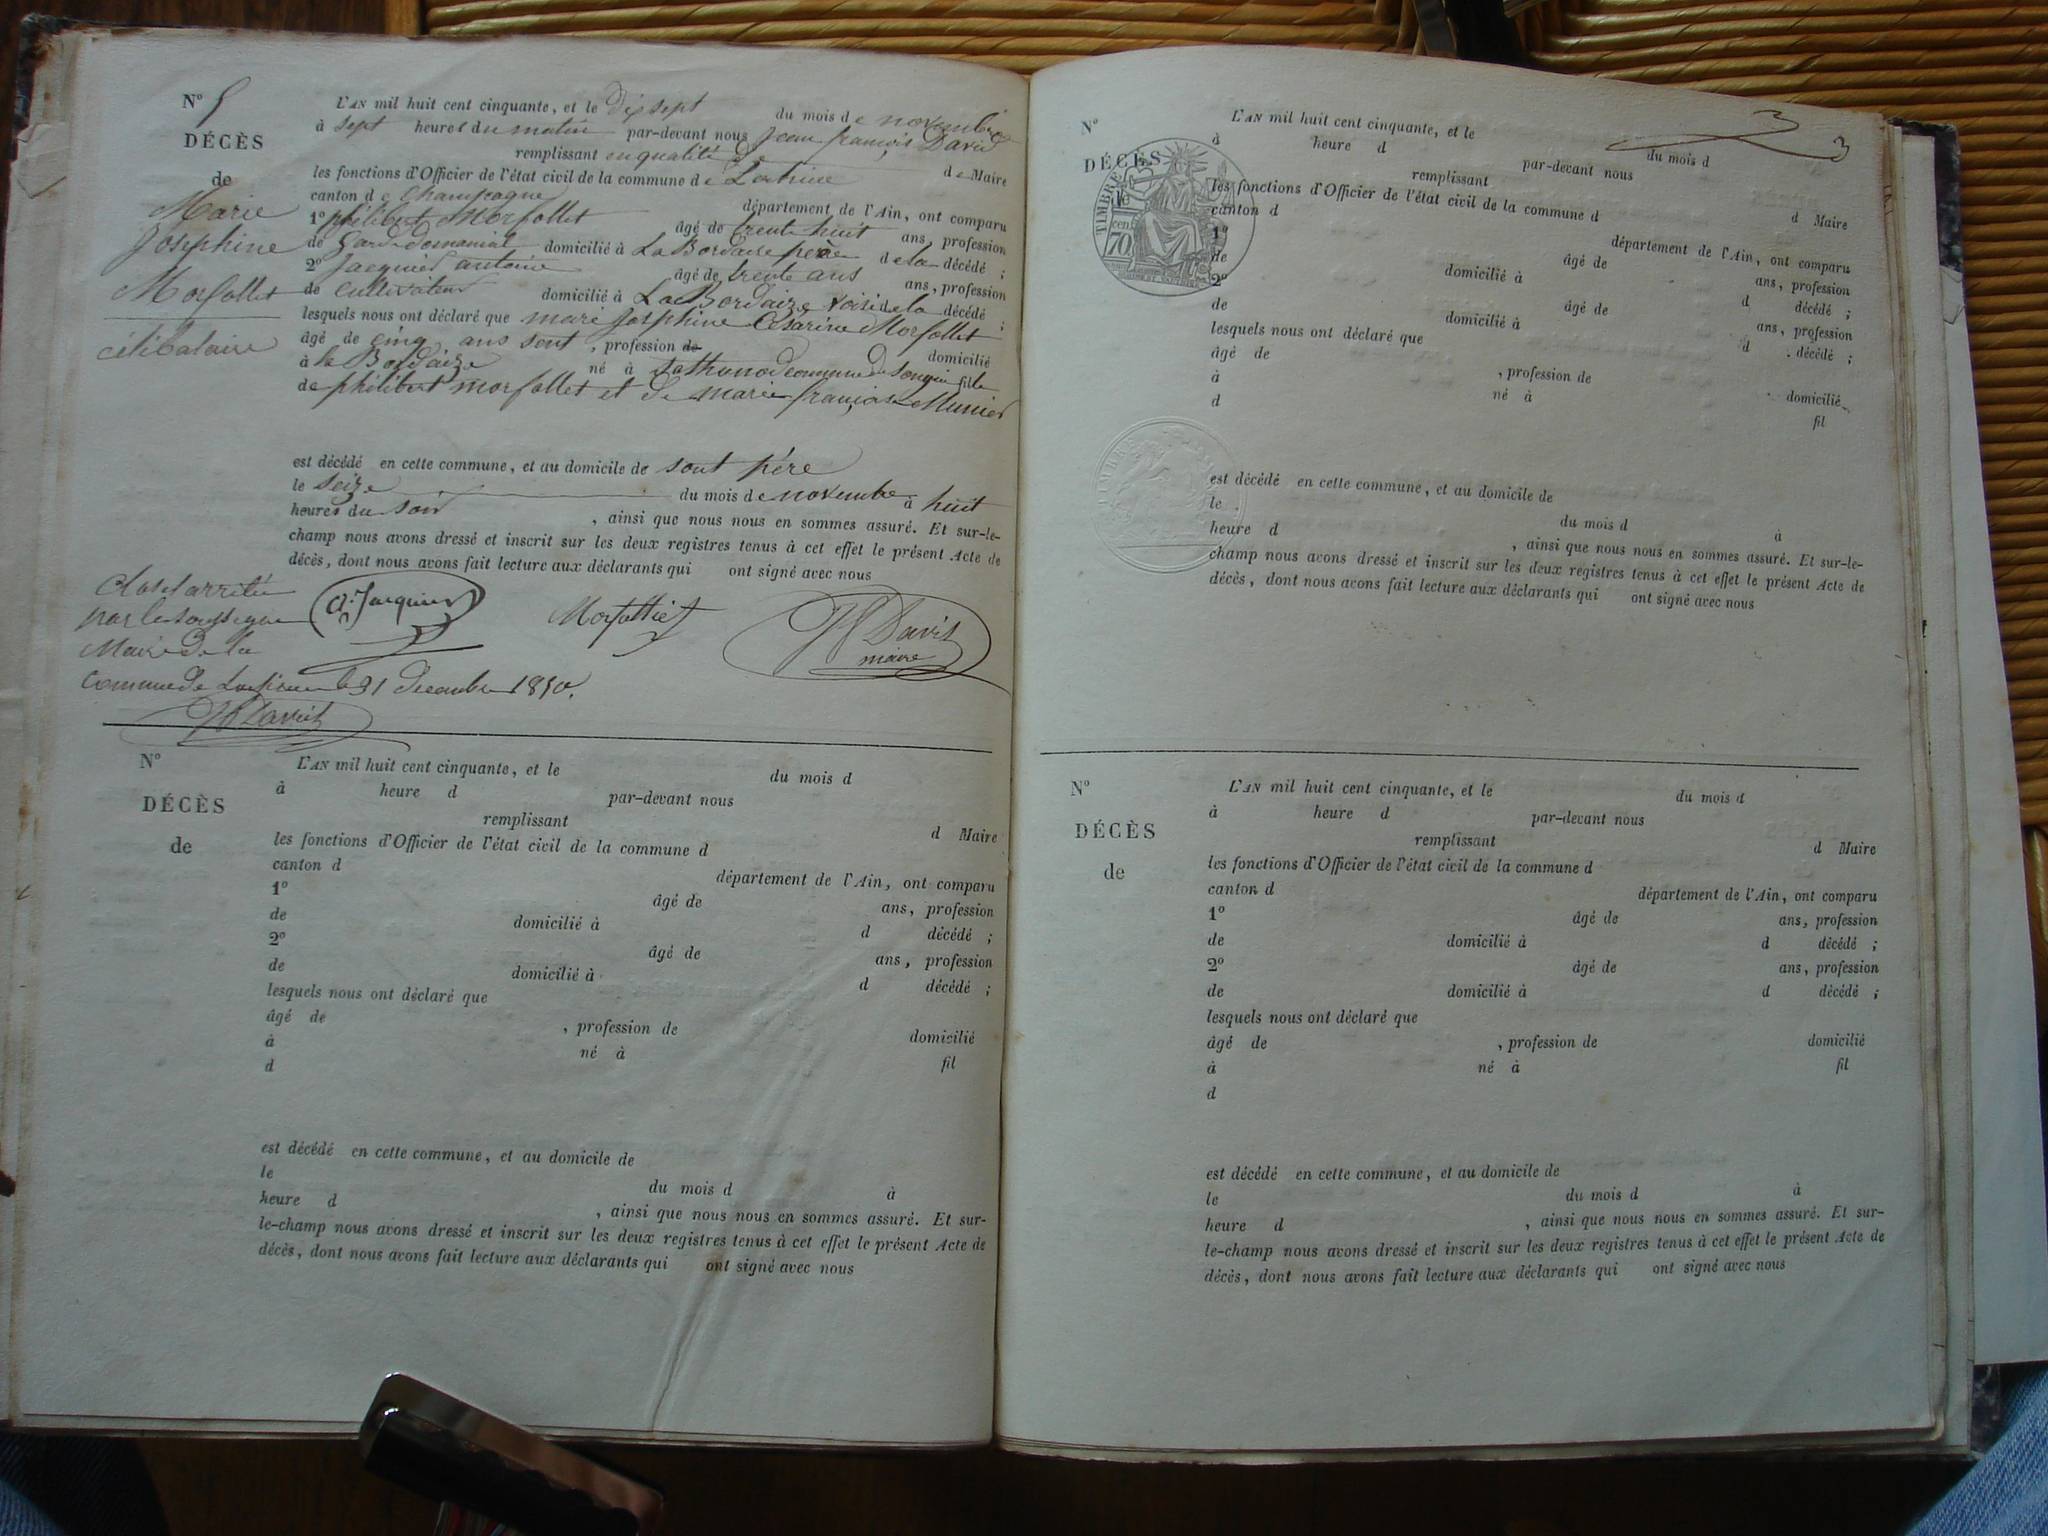 N° 5
DÉCÈS
de
Marie
Josephine
Morfollet
célibataire
L'AN mil huit cent cinquante, et le dix sept du mois de novembre
à sept heures du matin par-devant nous Jean françois David
remplissant en qualité de Maire
les fonctions d'Officier de l'état civil de la commune de
canton de Champagne département de l'Ain, ont comparu
1° philibert Morfollet âgé de trente huit ans, profession
de Garde Domanial domicilié à La Bordaize père de la décédé ;
2° Jacquier antoine âgé de trente ans ans, profession
de cultivateur domicilié à La Bordaize voisi de la décédé ;
lesquels nous ont déclaré que marie Josephine Césarine Morfollet
âgé de cinq ans sont , profession de domicilié
à la Bordaize né à commune de Songieu fille
de philibert morfollet et de marie françoise Munier
est décédé en cette commune, et au domicile de sont père
le seize du mois de novembre à huit
heures du soir , ainsi que nous nous en sommes assuré. Et sur-le-
champ nous avons dressé et inscrit sur les deux registres tenus à cet effet le présent Acte de
décès, dont nous avons fait lecture aux déclarants qui ont signé avec nous
A. Jacquier Morfolliet JF David
maire
Clos et arrêté
par le soussigné
Maire de la
commune de le 31 decembre 1850.
JF David
N°
DÉCÈS
de
L'AN mil huit cent cinquante, et le du mois d
à heure d par-devant nous
remplissant d Maire
les fonctions d'Officier de l'état civil de la commune d
canton d département de l'Ain, ont comparu
1° âgé de ans, profession
de domicilié à d décédé ;
2° âgé de ans, profession
de domicilié à d décédé ;
lesquels nous ont déclaré que
âgé de , profession de domicilié
à né à fil
d
est décédé en cette commune, et au domicile de
le du mois d à
heure d , ainsi que nous nous en sommes assuré. Et sur-
le-champ nous avons dressé et inscrit sur les deux registres tenus à cet effet le présent Acte de
décès, dont nous avons fait lecture aux déclarants qui ont signé avec nous
3 3
N°
DÉCÈS
TIMBRE
70 cen
L'AN mil huit cent cinquante, et le du mois d
à heure d par-devant nous
remplissant d Maire
les fonctions d'Officier de l'état civil de la commune d
canton d département de l'Ain, ont comparu
1° âgé de ans, profession
de domicilié à d décédé ;
2° âgé de ans, profession
de domicilié à d décédé ;
lesquels nous ont déclaré que
âgé de , profession de domicilié
à né à fil
d
TIMBRE
est décédé en cette commune, et au domicile de
le du mois d à
heure d , ainsi que nous nous en sommes assuré. Et sur-le-
champ nous avons dressé et inscrit sur les deux registres tenus à cet effet le présent Acte de
décès, dont nous avons fait lecture aux déclarants qui ont signé avec nous
N°
DÉCÈS
de
L'AN mil huit cent cinquante, et le du mois d
à heure d par-devant nous
remplissant d Maire
les fonctions d'Officier de l'état civil de la commune d
canton d département de l'Ain, ont comparu
1° âgé de ans, profession
de domicilié à d décédé ;
2° âgé de ans, profession
de domicilié à d décédé ;
lesquels nous ont déclaré que
âgé de , profession de domicilié
à né à fil
d
est décédé en cette commune, et au domicile de
le du mois d à
heure d , ainsi que nous nous en sommes assuré. Et sur-
le-champ nous avons dressé et inscrit sur les deux registres tenus à cet effet le présent Acte de
décès, dont nous avons fait lecture aux déclarants qui ont signé avec nous